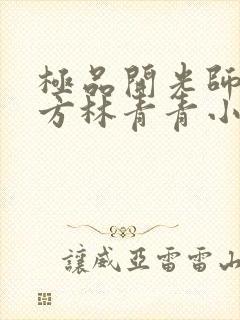 極品開光師
方林青青小
讓威亞雷雷山